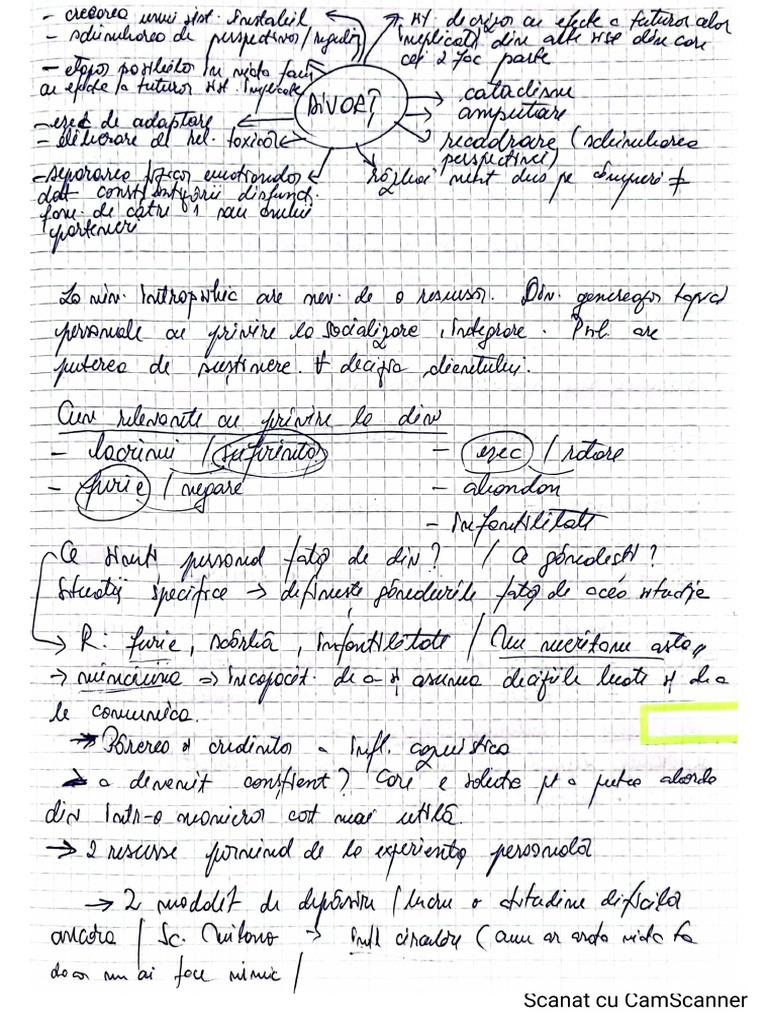 - crearea unui sist. instabil
- schimbarea de perspectivă/
- etapă posibilă în viața fam cu efecte a tuturor sist. implicate
- eșec de adaptare
- eliberare de rel. toxică
- separarea emoțională dat
fam. de către 1 sau ambii
parteneri
DIVORȚ
sit. decizională cu efecte a tuturor celor
implicați din alte sist din care
cei 2 fac parte
cataclism
amputare
recadrare (schimbarea
perspectivei)
război
La niv. intrapsihic are nev. de o resursă. Div. generează
personale cu privire la socializare, integrare. Psih. are
puterea de susținere. decizia clientului.
Cuv relevante cu privire la div
- lacrimi / suferință
- eșec / ratare
- furie / negare
- abandon
- infantilitate
Ce simți personal față de div? / Ce gândești?
Situații specifice → definește gândurile față de acea situație
→ R: furie, scârbă, infantilitate / Nu meritam asta"
→ minciuna → incapacit. de a-și asuma deciziile luate și de a
le comunica.
→ Părerea și credința a infl. cognitiv
→ a devenit conștient? Care e soluția pt a putea aborda
div într-o manieră cât mai utilă.
→ 2 resurse pornind de la experiența personală
→ 2 modalit de depășire / lucru o atitudine dificilă
ancora / Sc. Milano → infl circulare (cum ar arăta viața ta
dacă nu ai face nimic /
Scanat cu CamScanner